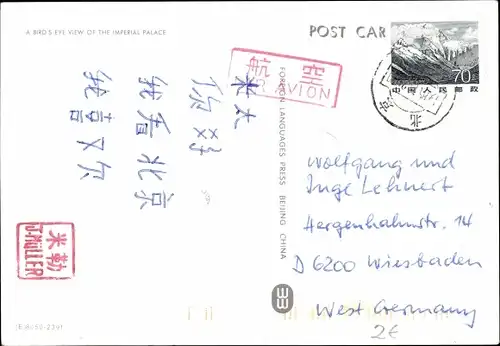 A BIRD'S EYE VIEW OF THE IMPERIAL PALACE
POST CAR
70分
中国人民邮政
北
航空
AVION
FOREIGN LANGUAGES PRESS BEIJING CHINA
你好
北京
Wolfgang und
Inge Lehnert
Hergenhahnstr. 14
D 6200 Wiesbaden
West Germany
2€
米勒
J·MÜLLER